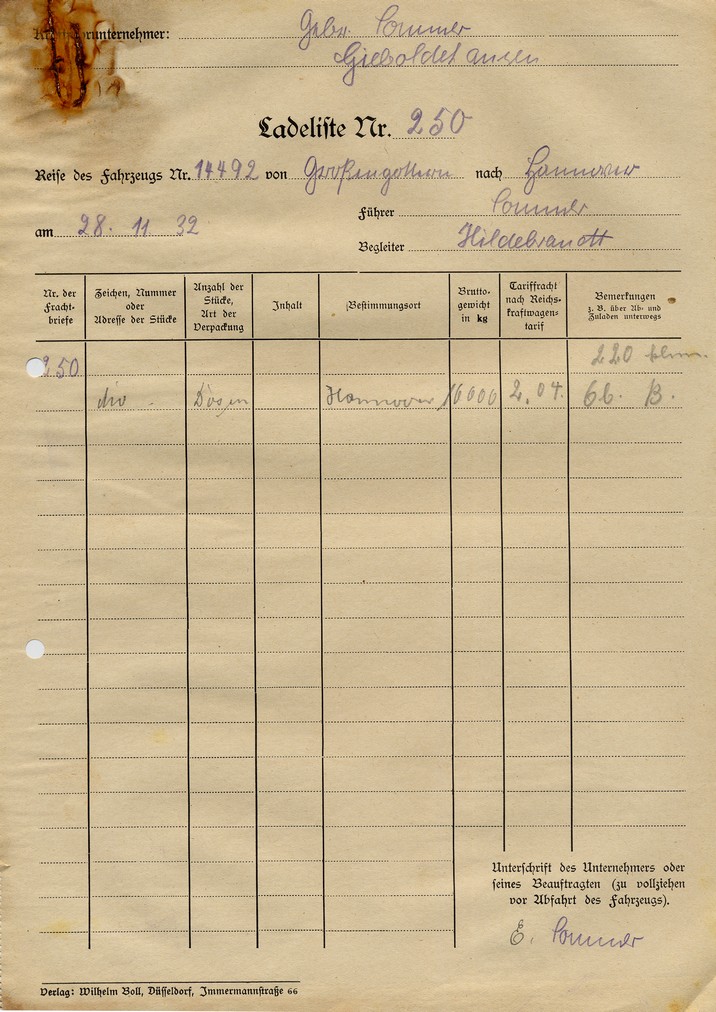 unternehmer: Gebr. Sommer
Gieboldehausen
Ladeliste Nr. 250
Reise des Fahrzeugs Nr. 14492 von Großengottern nach Hannover
am 28. 11 32 Führer Sommer
Begleiter Hildebrandt
Nr. der Frachtbriefe
Zeichen, Nummer oder Adresse der Stücke
Anzahl der Stücke, Art der Verpackung
Inhalt
Bestimmungsort
Bruttogewicht in kg
Tariffracht nach Reichskraftwagentarif
Bemerkungen z. B. über Ab- und Zuladen unterwegs
250 220
Hannover 2.04. 66. B.
Unterschrift des Unternehmers oder
seines Beauftragten (zu vollziehen
vor Abfahrt des Fahrzeugs).
E. Sommer
Verlag: Wilhelm Boll, Düsseldorf, Immermannstraße 66